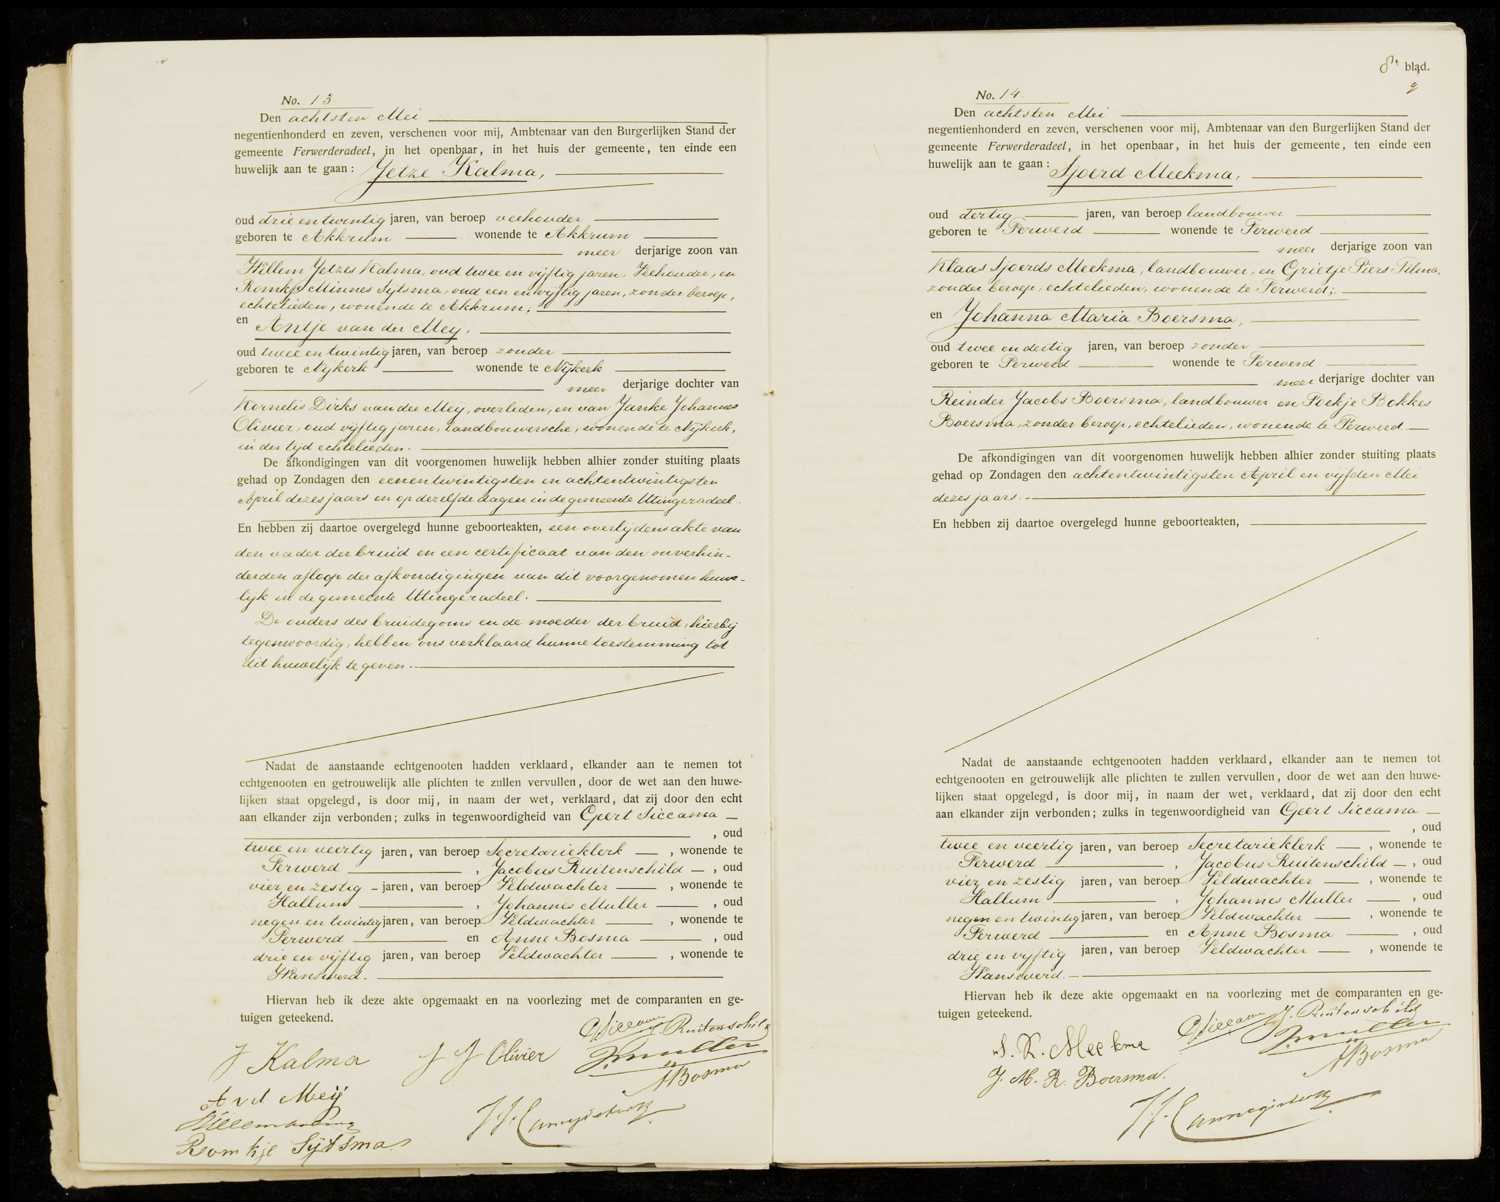 No. 13
Den achtsten Mei
negentienhonderd en zeven, verschenen voor mij, Ambtenaar van den Burgerlijken Stand der
gemeente Ferwerderadeel, in het openbaar, in het huis der gemeente, ten einde een
huwelijk aan te gaan: Jetze Kalma,
oud drie en twintig jaren, van beroep veehouder
geboren te Akkrum wonende te Akkrum
meer derjarige zoon van
Willem Jetzes Kalma, oud twee en vijftig jaren, Veehouder, en
Romkje Minnes Sytsma, oud een en vijftig jaren, zonder beroep,
echtelieden, wonende te Akkrum;
en Antje van der Mey,
oud twee en twintig jaren, van beroep zonder
geboren te Nijkerk wonende te Nijkerk
meer derjarige dochter van
Kornelis Dirks van der Mey, overleden, en van Janke Johannes
Olivier, oud vijftig jaren, landbouwersche, wonende te Nijkerk,
in der tijd echtelieden.
De afkondigingen van dit voorgenomen huwelijk hebben alhier zonder stuiting plaats
gehad op Zondagen den eenentwintigsten en achtentwintigsten
April dezes jaars en op dezelfde dagen in de gemeente Utingeradeel.
En hebben zij daartoe overgelegd hunne geboorteakten, een overlijdensakte van
den vader der bruid en een certificaat van den onverhin-
derden afloop der afkondigingen van dit voorgenomen huwe-
lijk in de gemeente Utingeradeel.
De ouders des bruidegoms en de moeder der bruid, hierbij
tegenwoordig, hebben ons verklaard hunne toestemming tot
dit huwelijk te geven.
Nadat de aanstaande echtgenooten hadden verklaard, elkander aan te nemen tot
echtgenooten en getrouwelijk alle plichten te zullen vervullen, door de wet aan den huwe-
lijken staat opgelegd, is door mij, in naam der wet, verklaard, dat zij door den echt
aan elkander zijn verbonden; zulks in tegenwoordigheid van Geert Siccama
, oud
twee en veertig jaren, van beroep Secretarieklerk , wonende te
Ferwerd , Jacobus Ruitenschild , oud
vier en zestig jaren, van beroep Veldwachter , wonende te
Hallum , Johannes Muller , oud
negen en twintig jaren, van beroep Veldwachter , wonende te
Ferwerd en Anne Bosma , oud
drie en vijftig jaren, van beroep Veldwachter , wonende te
Wanswerd.
Hiervan heb ik deze akte opgemaakt en na voorlezing met de comparanten en ge-
tuigen geteekend.
GSiccama J. Ruitenschild
J Kalma J J Olivier JMuller
ABosma
A v d Meij
Romkje Sijtsma
8e blad.
No. 14
Den achtsten Mei
negentienhonderd en zeven, verschenen voor mij, Ambtenaar van den Burgerlijken Stand der
gemeente Ferwerderadeel, in het openbaar, in het huis der gemeente, ten einde een
huwelijk aan te gaan: Sjoerd Meekma,
oud dertig jaren, van beroep landbouwer
geboren te Ferwerd wonende te Ferwerd
meer derjarige zoon van
Klaas Sjoerds Meekma, landbouwer, en Grietje Piers Tilma,
zonder beroep, echtelieden, wonende te Ferwerd;
en Johanna Maria Boersma,
oud twee en dertig jaren, van beroep zonder
geboren te Ferwerd wonende te Ferwerd
meer derjarige dochter van
Reinder Jacobs Boersma, landbouwer en Foekje Bokkes
Boersma, zonder beroep, echtelieden, wonende te Ferwerd.
De afkondigingen van dit voorgenomen huwelijk hebben alhier zonder stuiting plaats
gehad op Zondagen den achtentwintigsten April en vijfden Mei
dezes jaars.
En hebben zij daartoe overgelegd hunne geboorteakten,
Nadat de aanstaande echtgenooten hadden verklaard, elkander aan te nemen tot
echtgenooten en getrouwelijk alle plichten te zullen vervullen, door de wet aan den huwe-
lijken staat opgelegd, is door mij, in naam der wet, verklaard, dat zij door den echt
aan elkander zijn verbonden; zulks in tegenwoordigheid van Geert Siccama
, oud
twee en veertig jaren, van beroep Secretarieklerk , wonende te
Ferwerd , Jacobus Ruitenschild , oud
vier en zestig jaren, van beroep Veldwachter , wonende te
Hallum , Johannes Muller , oud
negen en twintig jaren, van beroep Veldwachter , wonende te
Ferwerd en Anne Bosma , oud
drie en vijftig jaren, van beroep Veldwachter , wonende te
Wanswerd.
Hiervan heb ik deze akte opgemaakt en na voorlezing met de comparanten en ge-
tuigen geteekend.
GSiccama J. Ruitenschild
S. K. Meekma JMuller
J. M. R. Boersma. ABosma